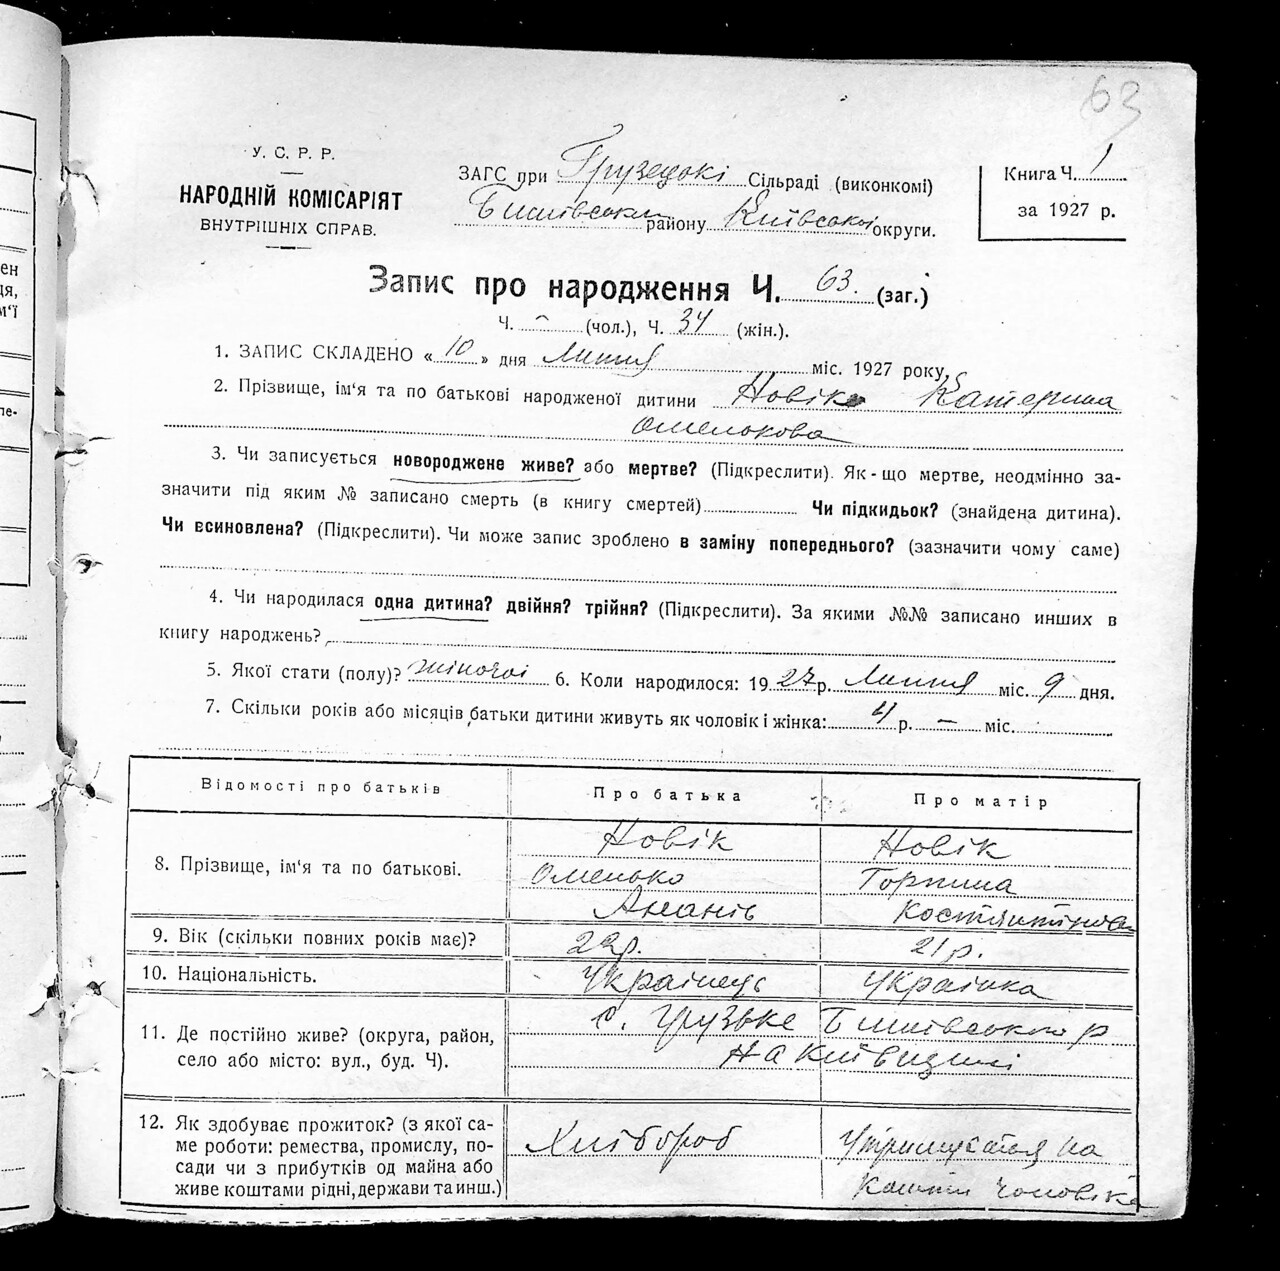 63
У. С. Р. Р.
НАРОДНІЙ КОМІСАРІЯТ
ВНУТРІШНІХ СПРАВ.
ЗАГС при Грузецькі Сільраді (виконкомі)
Бишівськи району Київської округи.
Книга Ч. 1
за 1927 р.
Запис про народження Ч. 63. (заг.)
Ч. – (чол.), Ч. 34 (жін.).
1. ЗАПИС СКЛАДЕНО «10» дня Липня міс. 1927 року,
2. Прізвище, ім'я та по батькові народженої дитини Новік Катерина
Омелькова
3. Чи записується новороджене живе? або мертве? (Підкреслити). Як-що мертве, неодмінно за-
значити під яким № записано смерть (в книгу смертей) Чи підкидьок? (знайдена дитина).
Чи всиновлена? (Підкреслити). Чи може запис зроблено в заміну попереднього? (зазначити чому саме)
4. Чи народилася одна дитина? двійня? трійня? (Підкреслити). За якими №№ записано инших в
книгу народжень?
5. Якої стати (полу)? жіночоі 6. Коли народилося: 1927 р. Липня міс. 9 дня.
7. Скільки років або місяців батьки дитини живуть як чоловік і жінка: 4 р. — міс.
Відомості про батьків
Про батька
Про матір
8. Прізвище, ім'я та по батькові.
Новік
Омелько
Ананів
Новік
Горпина
Костянтинова
9. Вік (скільки повних років має)?
22р.
21р.
10. Національність.
Українець
Українка
11. Де постійно живе? (округа, район,
село або місто: вул., буд. Ч).
с. Грузьке Бишівського р
на Київщині
12. Як здобуває прожиток? (з якої са-
ме роботи: ремества, промислу, по-
сади чи з прибутків од майна або
живе коштами рідні, держави та инш.)
Хлібороб
Утримується на
кошти чоловіка
ен
ця,
м'ї
пе-